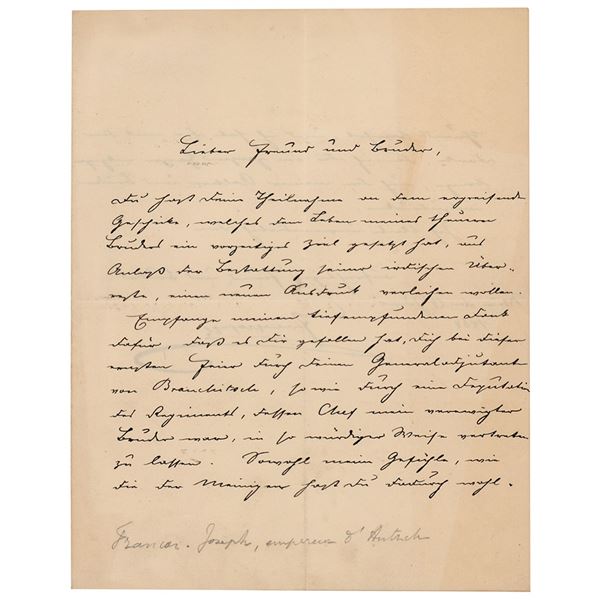 Lieber Freund und Bruder,
Du hast Deine Theilnahme an dem ergreifenden
Geschicke, welches dem Leben meines theuren
Bruders ein vorzeitiges Ziel gesetzt hat, aus
Anlaß der Bestattung seiner irdischen Über-
reste, einen neuen Ausdruck verleihen wollen.
Empfange meinen tiefempfundenen Dank
dafür, daß es Dir gefallen hat, Dich bei dieser
ernsten Feier durch Deinen Generaladjutanten
von Brauchitsch, so wie durch eine Deputation
des Regiments, dessen Chef mein verewigter
Bruder war, in so würdiger Weise vertreten
zu lassen. Sowohl meine Gefühle, wie
die der Meinigen hast Du dadurch wohl-
Francois-Joseph, empereur d'Autrich